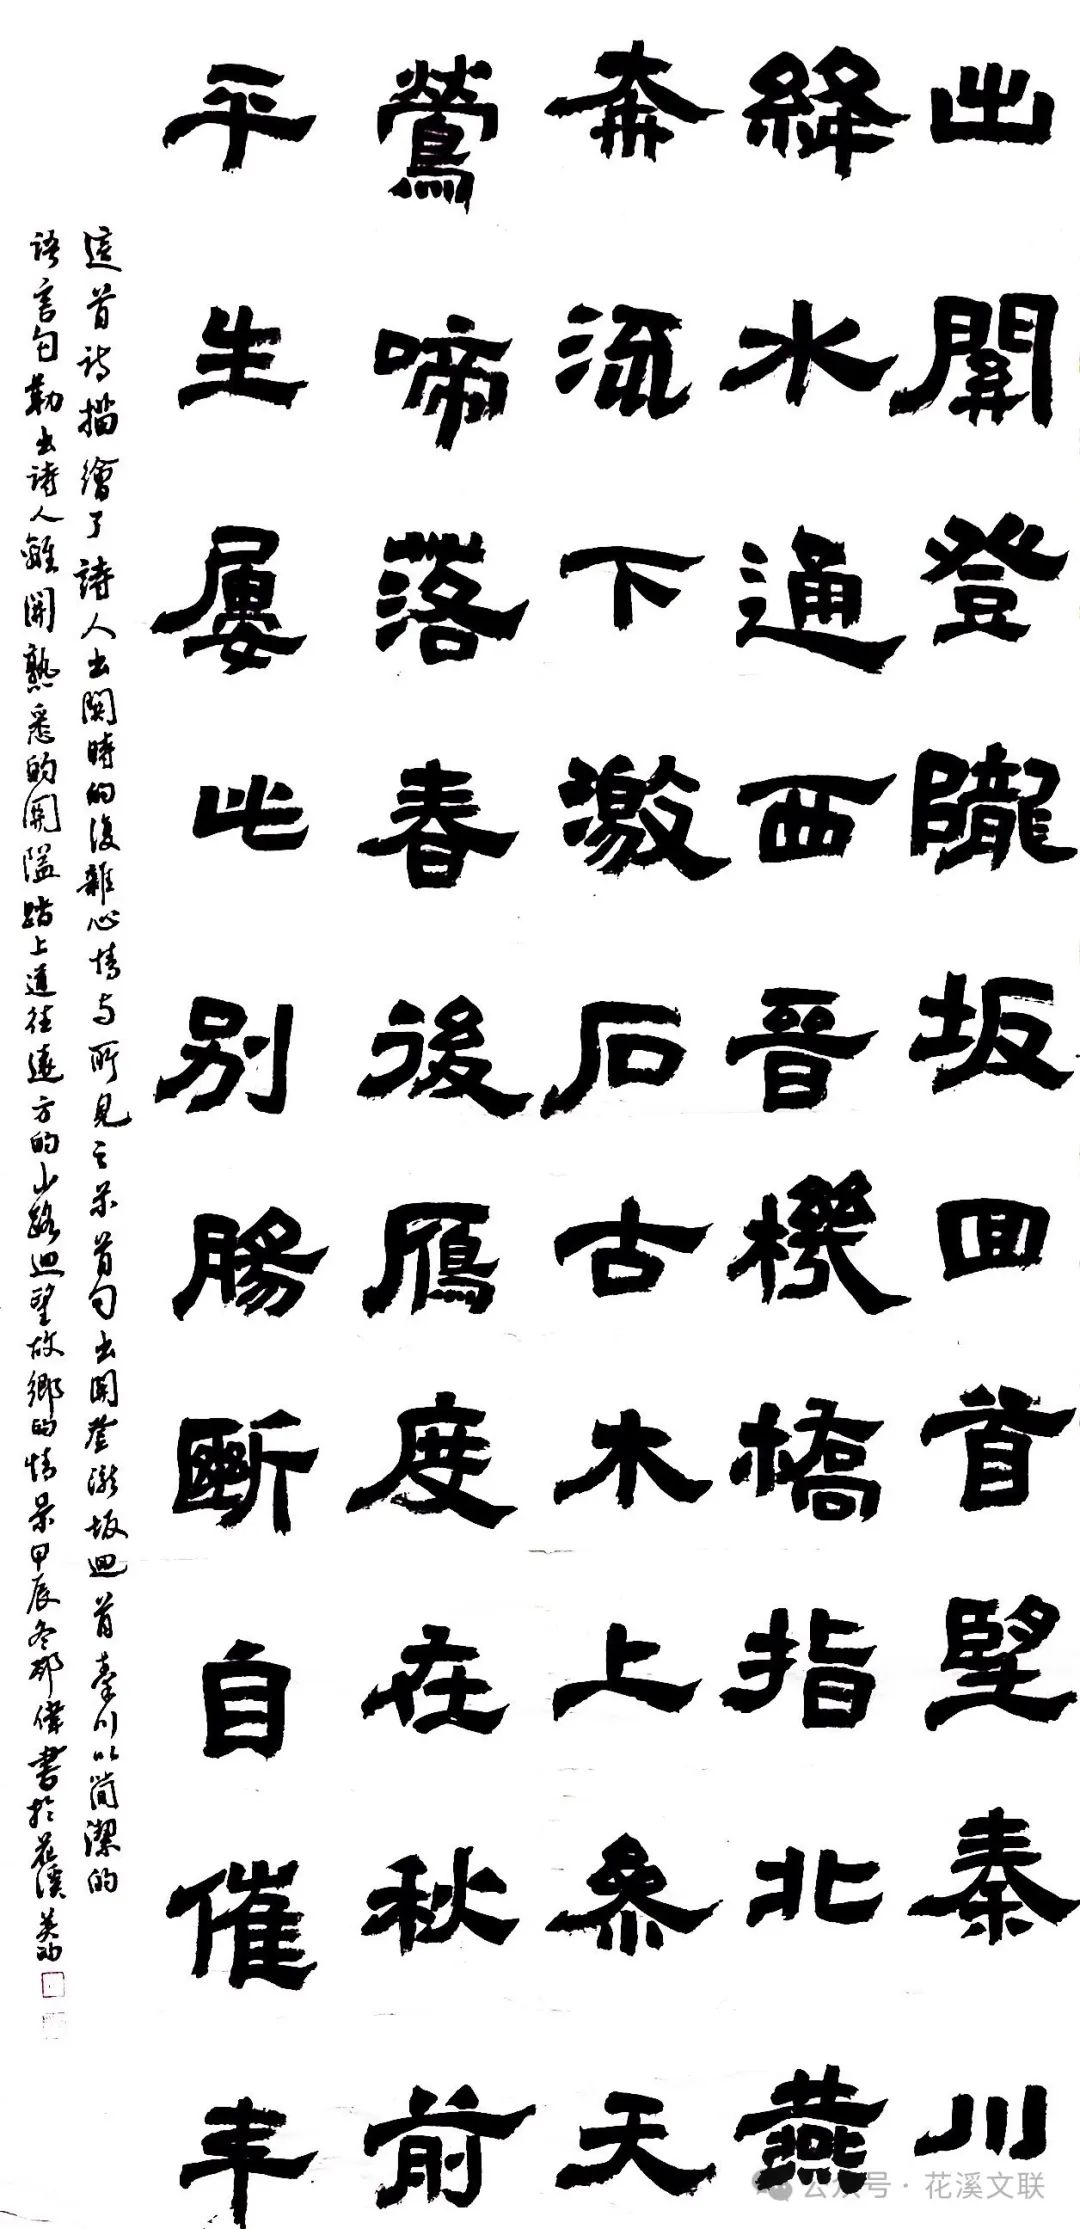 出關登隴坂回首望秦川
絳水通西晉機橋指北燕
奔流下激石古木上參天
鶯啼落春後雁度在秋前
平生屢此別腸斷自催年
這首詩描繪了詩人出關時的復雜心情与所見之景首句出關登隴坂迴首秦川以簡潔的
語言勾勒出詩人離開熟悉的關隘踏上通往遠方的山路迴望故鄉的情景甲辰冬鄧偉書於花溪
公众号·花溪文联